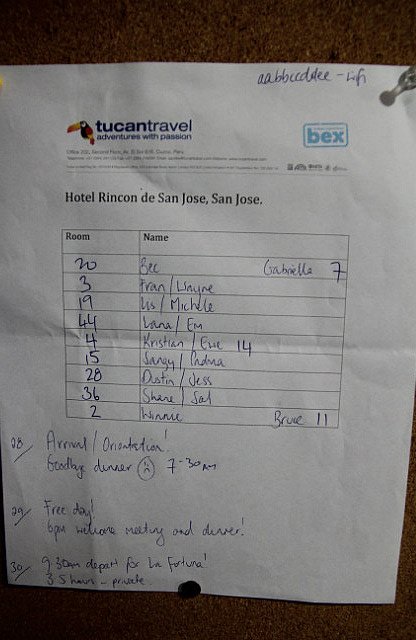 aabbccddee - wifi
tucantravel
adventures with passion
bex
Hotel Rincon de San Jose, San Jose.
Room Name
20 Bec Gabrielle 7
3 Fran / Wayne
19 Lis / Michele
44 Lana / Em
4 Kristian / Evie 14
15 Sangy / Padma
28 Dustin / Jess
36 Shane / Sal
2 Winnie Bruce 11
28/ Arrival / Orientation!
Goodbye dinner 7-30pm
29/ Free day!
6pm welcome meeting and dinner!
30/ 9.30am depart for La Fortuna!
3.5 hours - private.